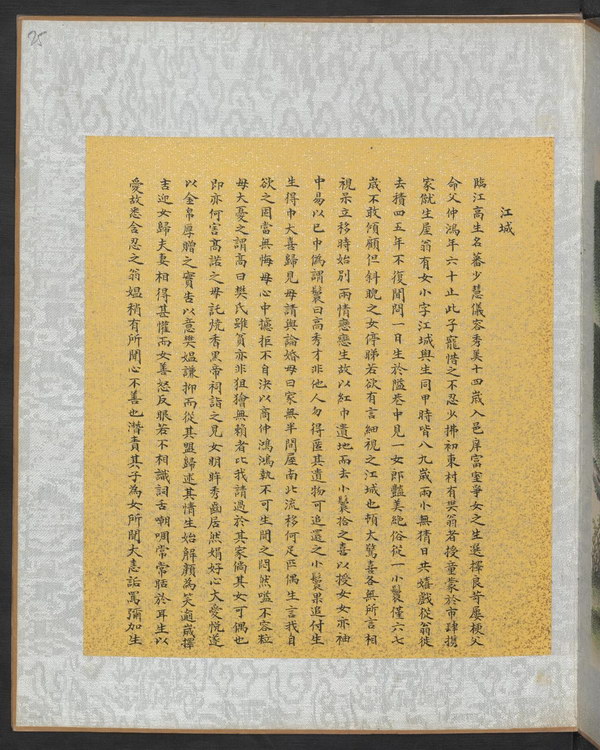 25
江城
臨江高生名蕃少慧儀容秀美十四歲入邑庠富室爭女之生選擇良苛屢梗父
命父仲鴻年六十止此子寵惜之不忍少拂初東村有樊翁者授童蒙於市肆攜
家僦生屋翁有女小字江城與生同甲時皆八九歲兩小無猜日共嬉戲後翁徙
去積四五年不復聞問一日生於隘巷中見一女郎豔美絕俗從一小鬟僅六七
歲不敢傾顧但斜睨之女停睇若欲有言細視之江城也頓大驚喜各無所言相
視呆立移時始別兩情戀戀生故以紅巾遺地而去小鬟拾之喜以授女女亦袖
中易以己巾偽謂鬟曰高秀才非他人勿得匿其遺物可追還之小鬟果追付生
生得巾大喜歸見母請與論婚母曰家無半間屋南北流移何足匹偶生言我自
欲之固當無悔母心中攄拒不自決以商仲鴻鴻執不可生聞之悶然嗌不容粒
母大憂之謂高曰樊氏雖貧亦非狙獪無賴者比我請過於其家倘其女可偶也
即亦何害高諾之母託燒香黑帝祠詣之見女明眸秀齒居然娟好心大愛悅遂
以金帛厚贈之實告以意樊媼謙抑而後其盟歸述其情生始解顏為笑逾歲擇
吉迎女歸夫妻相得甚懽而女善怒反眼若不相識詞舌嘲啁常常聒於耳生以
愛故悉含忍之翁媼稍有所聞心不善也潛責其子為女所聞大恚詬罵彌加生